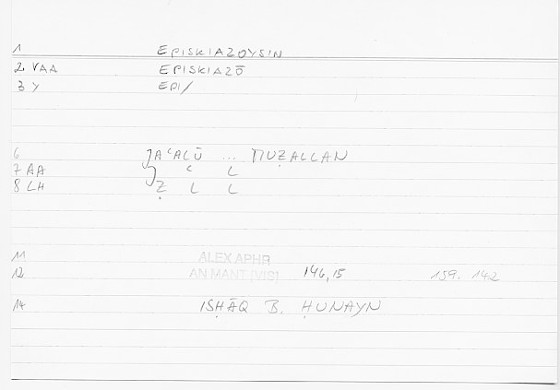 1 EPISKIAZOYSIN
2 VAA EPISKIAZŌ
3 Y EPI/
6 JAʿALŪ ... MUẒALLAN
7 AA J ʿ L
8 LH Ẓ L L
11 ALEX APHR
12 AN MANT (VIS) 146,15 159. 142
14 ISḤĀQ B. ḤUNAYN